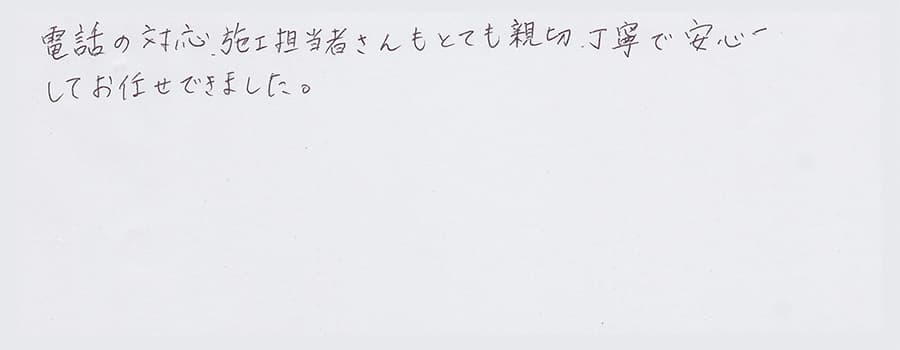 電話の対応、施工担当者さんもとても親切、丁寧で安心
してお任せできました。